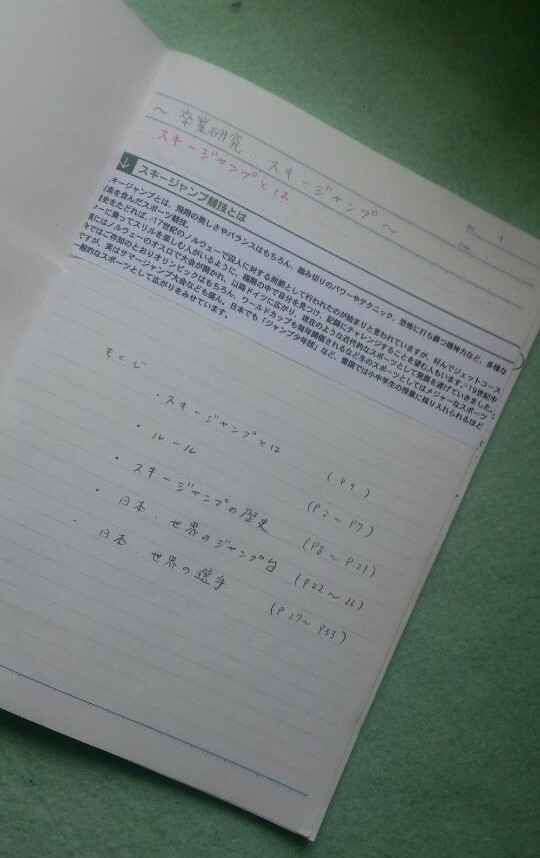 ～ 卒業研究．スキージャンプ ～
No. 1
Date
スキージャンプとは
↓ スキージャンプ競技とは
キージャンプとは、飛翔の美しさやバランスはもちろん、踏み切りのパワーやテクニック、恐怖に打ち勝つ精神力など、多様な
要素を含んだスポーツ競技。
史をたどれば、17世紀のノルウェーで囚人に対する刑罰として行われたのが始まりと言われていますが、好んでジェットコース
ターに乗ってスリルを楽しむ人がいるように、極限の中で自分を見つけ、記録にチャレンジすることを望む人もいます。19世紀中
にはノルウェーのオスロで大会が開かれ、以降ドイツに広がり、現在のような近代的なスポーツとして発展を遂げていきました。
今ではご存知のとおりオリンピックはもちろん、ワールドカップも毎年開催されるなど冬のスポーツとしてはメジャーなスポーツ
ですが、実はサマージャンプ大会なども盛ん。日本でも「ジャンプ少年団」など、雪国では小中学生の授業に採り入れられるほど
一般的なスポーツとして広がりをみせています。
もくじ
・スキージャンプとは (P1)
・ルール (P2～P7)
・スキージャンプの歴史 (P8～P21)
・日本．世界のジャンプ台 (P22～26)
・日本．世界の選手 (P27～P33)